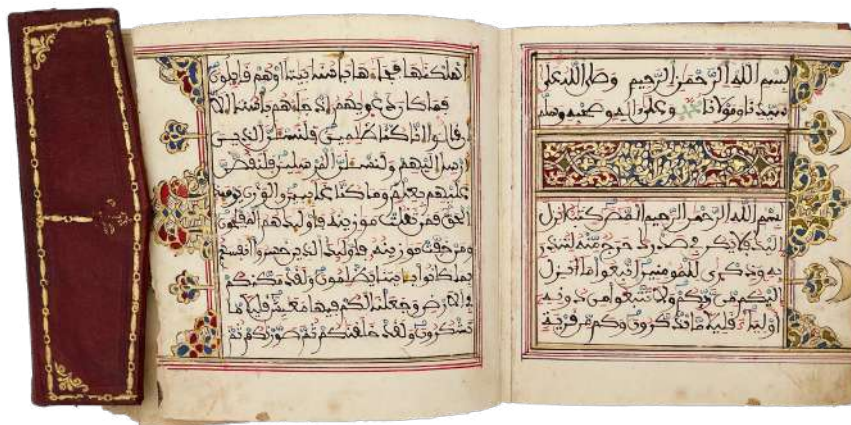 بسم الله الرحمن الرحيم وصلى الله على
سيدنا ومولانا محمد وعلى اله وصحبه وسلم
بسم الله الرحمن الرحيم المص كتب انزل
اليك فلا يكن في صدرك حرج منه لتنذر
به وذكرى للمومنين اتبعوا ما انزل
اليكم من ربكم ولا تتبعوا من دونه
اولياء قليلا ما تذكرون وكم من قرية
اهلكنها فجاءها باسنا بيتا او هم قايلون
فما كان دعويهم اذ جاءهم باسنا الا
ان قالوا انا كنا ظلمين فلنسئلن الذين
ارسل اليهم ولنسئلن المرسلين فلنقصن
عليهم بعلم وما كنا غايبين والوزن يوميذ
الحق فمن ثقلت موزينه فاوليك هم المفلحون
ومن خفت موزينه فاوليك الذين خسروا انفسهم
بما كانوا بايتنا يظلمون ولقد مكنكم
في الارض وجعلنا لكم فيها معيش قليلا ما
تشكرون ولقد خلقنكم ثم صورنكم ثم